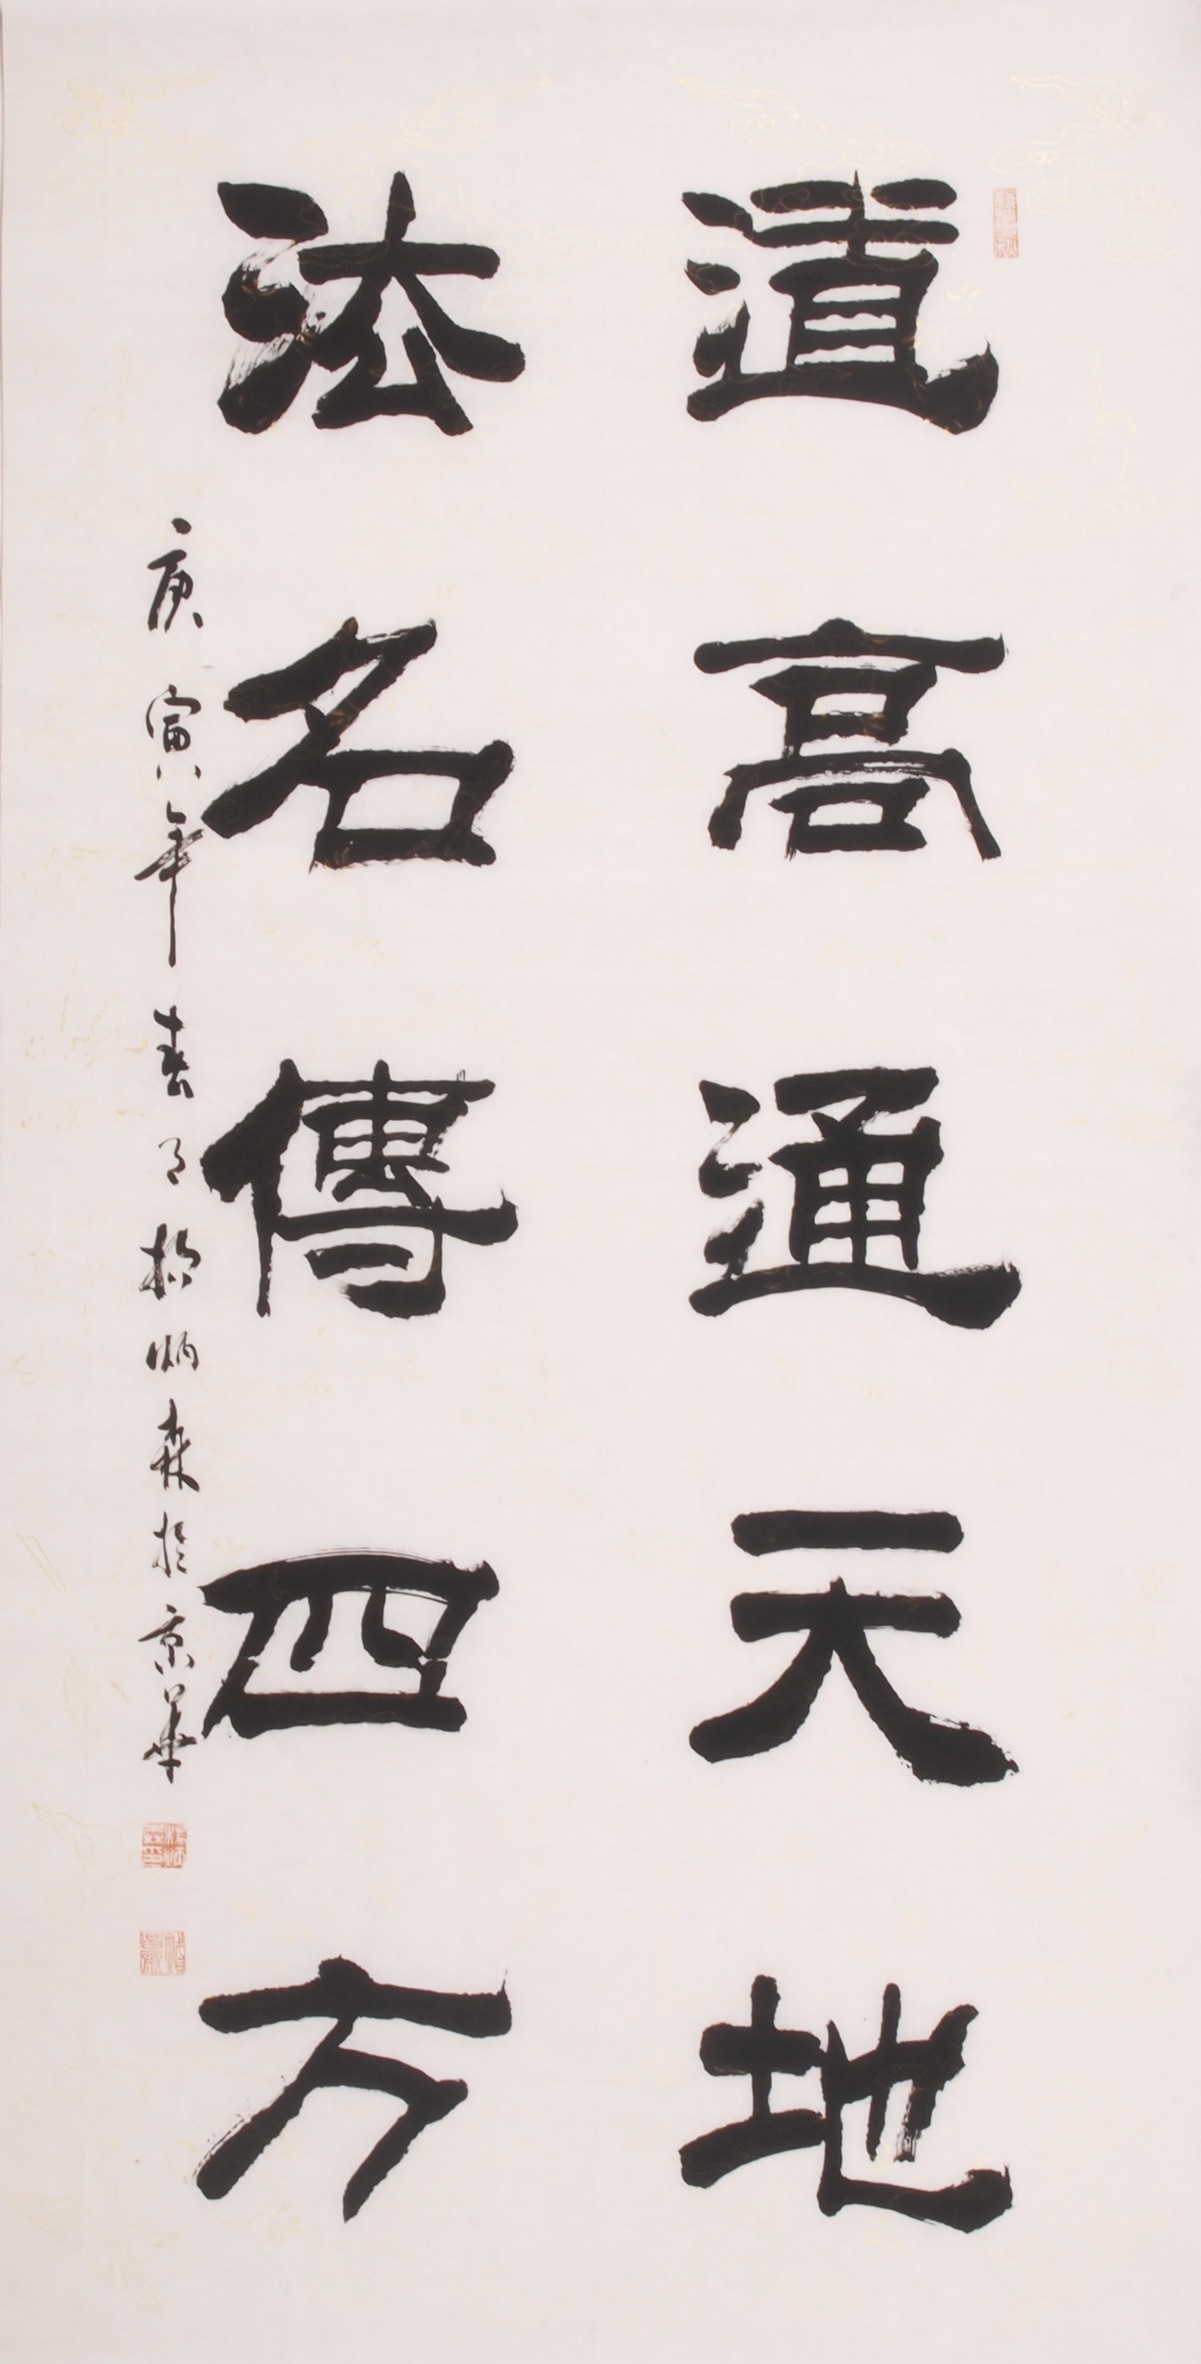 道高通天地
法名傳四方
庚寅年春月楊炳森於京華